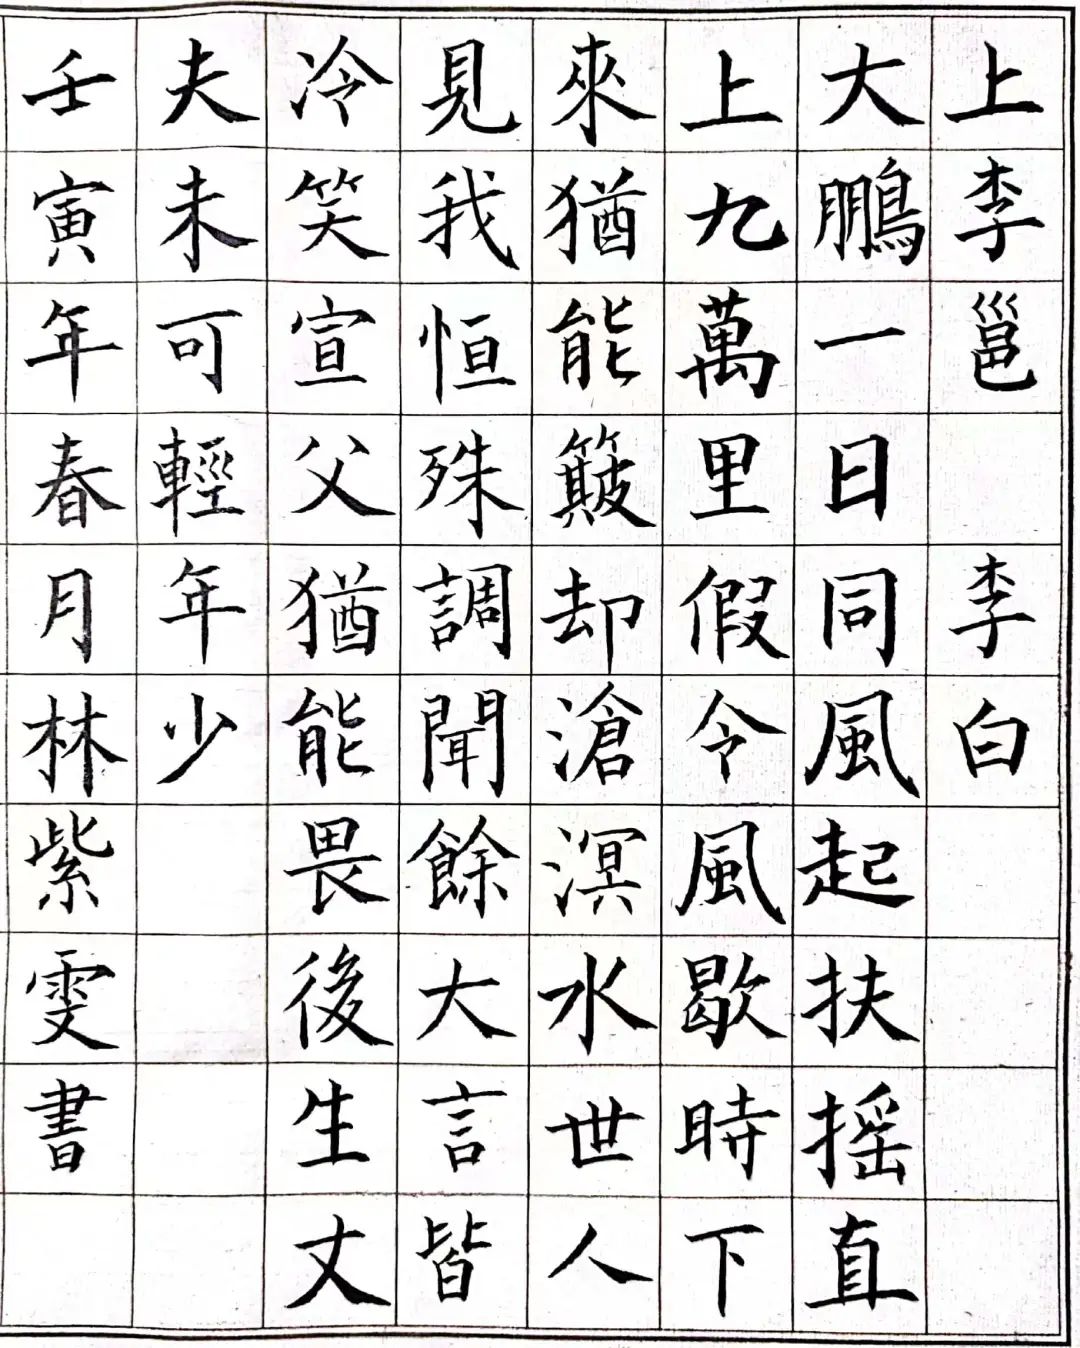 上李邕 李白
大鵬一日同風起扶摇直
上九萬里假令風歇時下
來猶能簸却滄溟水世人
見我恒殊調聞餘大言皆
冷笑宣父猶能畏後生丈
夫未可輕年少
壬寅年春月林紫雯書